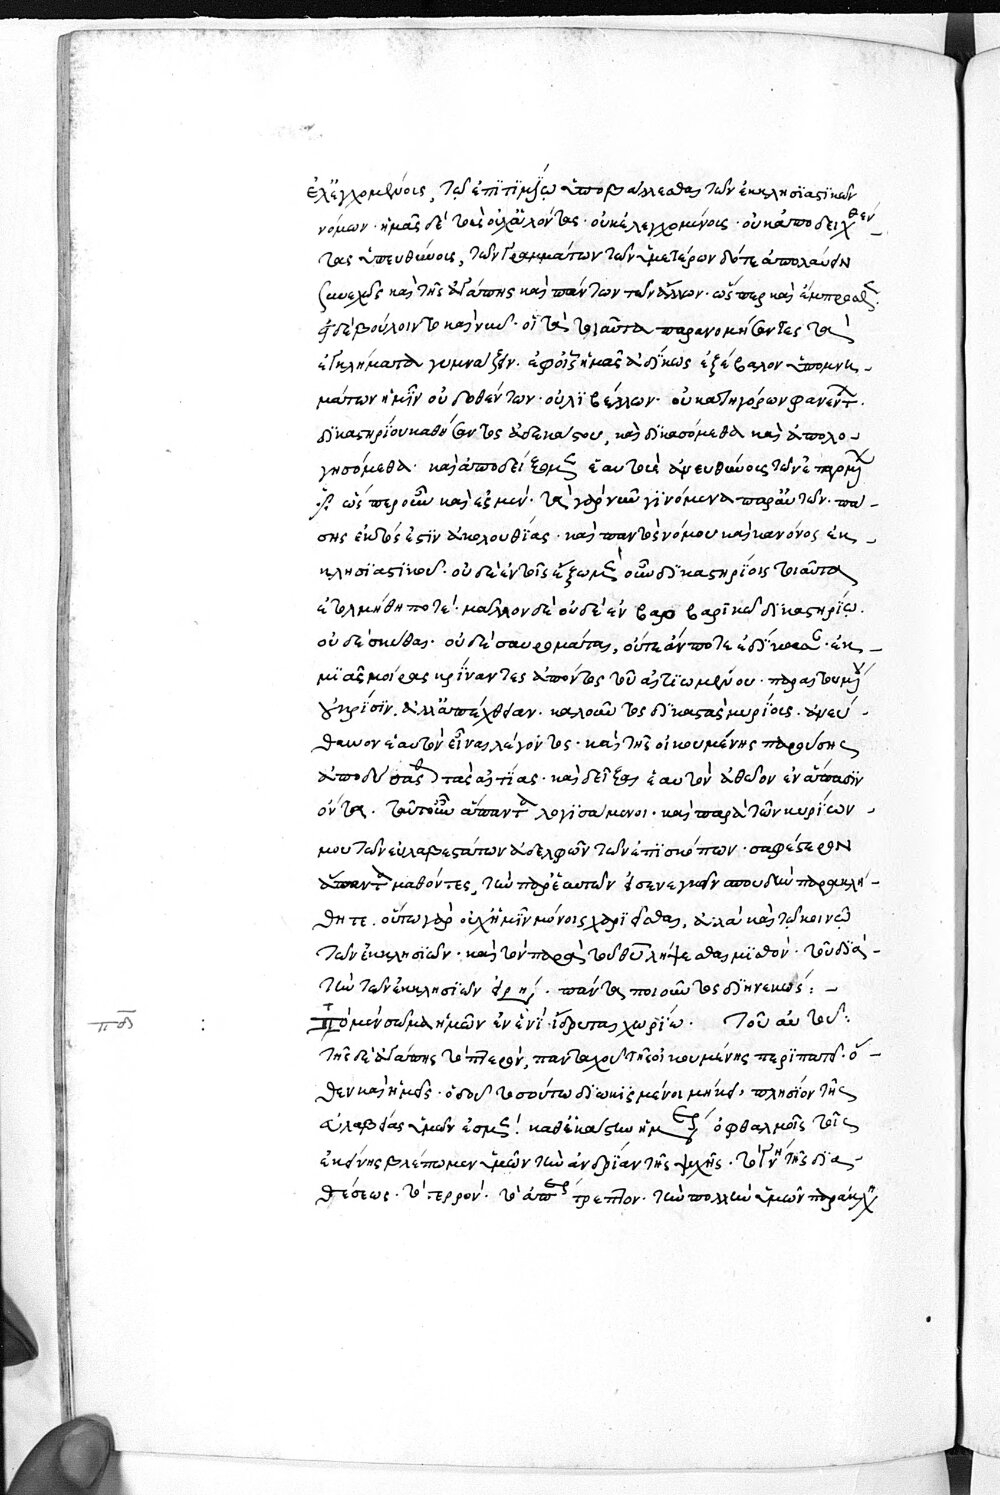 ἐλεγχομένοις, τῷ ἐπιτιμίῳ ὑποβάλλεσθαι τῶν ἐκκλησιαστικῶν
νόμων· ἡμᾶς δὲ τοὺς οὐχ ἁλόντας· οὐκ ἐλεγχομένοις· οὐκ ἀποδειχθέν-
τας ὑπευθύνοις, τῶν γραμμάτων τῶν ὑμετέρων δότε ἀπολαύειν
συνεχῶς καὶ τῆς ἀγάπης καὶ πάντων τῶν ἄλλων· ὥσπερ καὶ ἔμπροσθεν·
εἰ δὲ βούλοιντο καὶ νῦν· οἱ τὰ τοιαῦτα παρανομήσαντες τὰ
ἐγκλήματα γυμνάζειν· ἐφ' οἷς ἡμᾶς ἀδίκως ἐξέβαλον ὑπομνη-
μάτων ἡμῖν οὐ δοθέντων· οὐ λιβέλλων· οὐ κατηγόρων φανέντων·
δικαστηρίου καθίσαντος ἀδεκάστου, καὶ δικασόμεθα καὶ ἀπολο-
γησόμεθα· καὶ ἀποδείξομεν ἑαυτοὺς ἀνευθύνους τῶν ἐπαγομένων
ἡμῖν ὥσπερ οὖν καὶ ἐσμέν· τὰ γὰρ νῦν γινόμενα παρ' αὐτῶν· πά-
σης ἐκτός ἐστιν ἀκολουθίας· καὶ παντὸς νόμου καὶ κανόνος ἐκ-
κλησιαστικοῦ· οὐδὲ ἐν τοῖς ἔξωθεν οὖν δικαστηρίοις τοιαῦτα
ἐτολμήθη ποτέ· μᾶλλον δὲ οὐδὲ ἐν βαρβαρικῷ δικαστηρίῳ·
οὐδὲ σκύθαι· οὐδὲ σαυρομάται, οὕτε ἄν ποτε ἐδίκασαν· ἐκ
μιᾶς μοίρας κρίναντες ἀπόντος τοῦ αἰτιωμένου· παραιτουμένου
οὐ κρίσιν, ἀλλ' ἀπέχθειαν· καλοῦντος δικαστὰς μυρίους· ἀνεύ-
θυνον ἑαυτὸν εἶναι λέγοντος· καὶ τῆς οἰκουμένης παρούσης
ἀποδύσασθαι τὰς αἰτίας· καὶ δεῖξαι ἑαυτὸν ἀθῷον ἐν ἅπασιν
ὄντα· ταῦτ' οὖν ἅπαντα λογισάμενοι· καὶ παρὰ τῶν κυρίων
μου τῶν εὐλαβεστάτων ἀδελφῶν τῶν ἐπισκόπων· σαφέστερον
ἅπαντα μαθόντες, τὴν παρ' ἑαυτῶν εἰσενεγκεῖν σπουδὴν παρακλή-
θητε· οὕτω γὰρ οὐχ ἡμῖν μόνοις χαριεῖσθαι, ἀλλὰ καὶ τῷ κοινῷ
τῶν ἐκκλησιῶν· καὶ τὸν παρὰ τοῦ θυ λήψεσθαι μισθόν· τοῦ διὰ
τὴν τῶν ἐκκλησιῶν εἰρήνην· πάντα ποιοῦντος διηνεκῶς: -
πδ : Τὸ μὲν σῶμα ἡμῶν ἐν ἑνὶ ἵδρυται χωρίῳ· Τοῦ αὐτοῦ:
τῆς δὲ ἀγάπης τὸ πτερόν, πανταχοῦ τῆς οἰκουμένης περιίπταται· ὅ-
θεν καὶ ἡμεῖς· ὁδοῦ τοσούτῳ διῳκισμένοι μήκει, πλησίον τῆς
εὐλαβείας ὑμῶν ἐσμεν! καθ' ἑκάστην ἡμέραν ὀφθαλμοῖς τοῖς
ἐκείνης βλέπομεν ὑμῶν τὴν ἀνδρίαν τῆς ψυχῆς· τὸ γνήσιον τῆς δια-
θέσεως· τὸ στερρόν· τὸ ἀπερίτρεπτον· τὴν πολλὴν ὑμῶν παράκλησιν